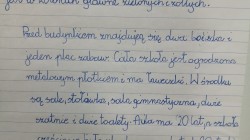 jest w kolorach głównie zielonych i żółtych.
Przed budynkiem znajdują się dwa boiska i
jeden plac zabaw. Cała szkoła jest ogrodzona
metalowym płotkiem i ma ławeczki. W środku
są sale, stołówka, sala gimnastyczna, duże
szatnie i dwie toalety. Aula ma 20 lat, a szkoła